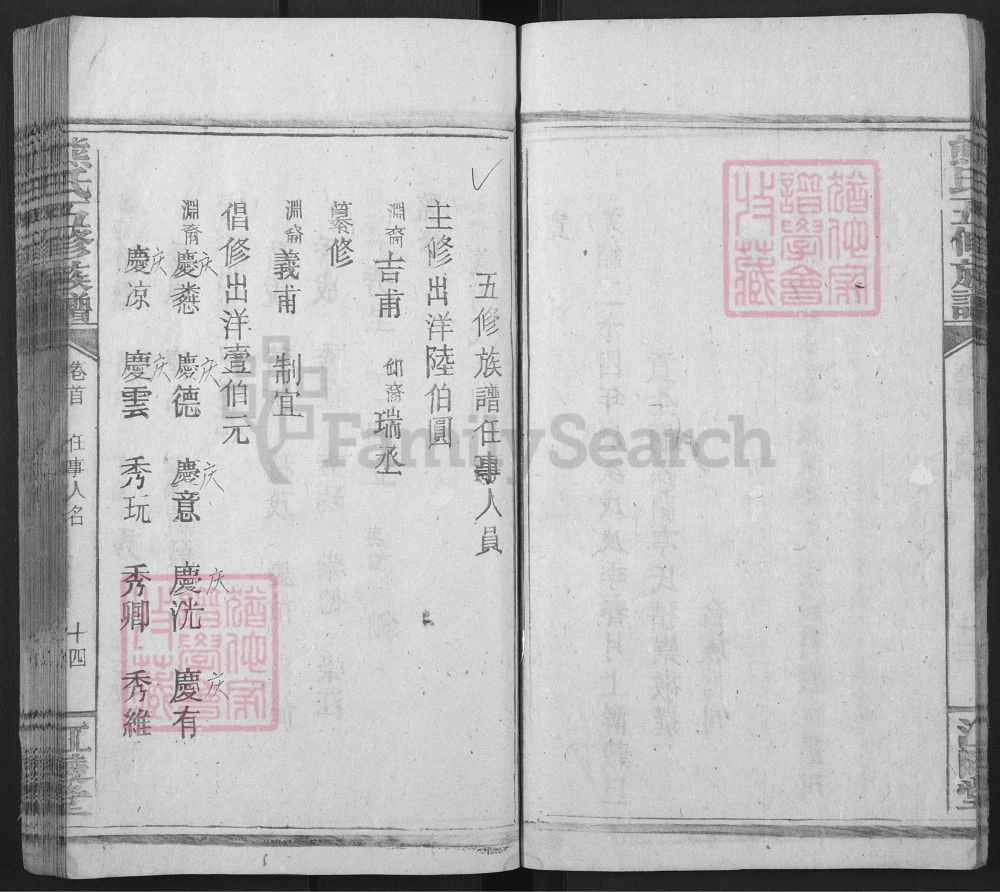 熊氏五修族譜
江陵堂
五修族譜任事人員
主修出洋陸伯圓
淵裔吉甫 卹裔瑞丞
纂修
淵裔義甫 制宜
倡修出洋壹伯元
淵裔慶燊 慶德 慶意 慶洸 慶有
庆 庆 庆 庆 庆
慶凉 慶雲 秀玩 秀卿 秀維
庆 庆
熊氏五修族譜
卷首 任事人名
十四
江陵堂
FamilySearch